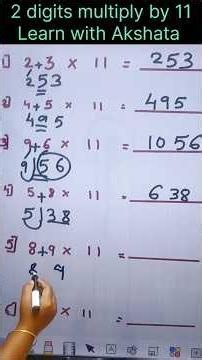 2 digits multiply by 11
Learn with Akshata
1) 2+3 × 11 = 253
253
2) 4+5 × 11 = 495
495
3) 9+6 × 11 = 1056
9)56
4) 5+8 × 11 = 638
5)38
5) 8+9 × 11 =
8 9
× 11 =